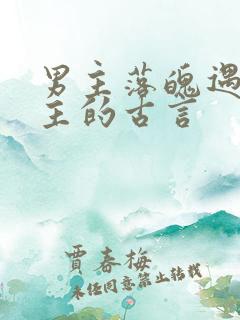 男主落魄遇
主的古言
賈春梅
未经同意禁止转载